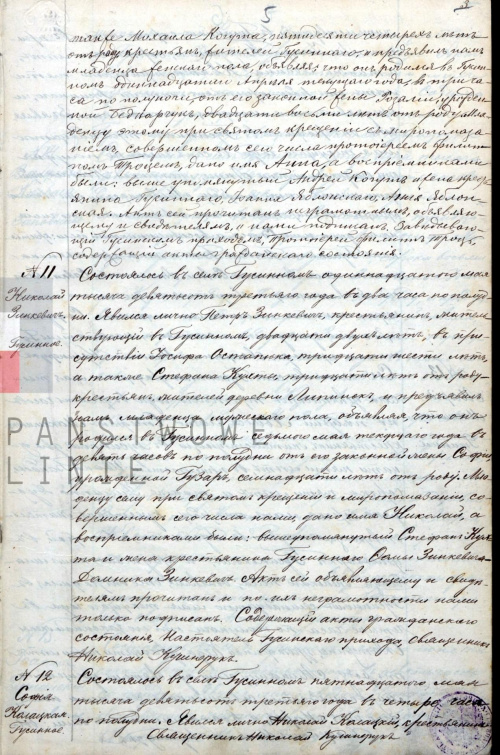 5
также Михаила Когута, пятидесяти четырехъ лѣтъ
отъ роду крестьянъ, жителей Гусиннаго, и предъявилъ намъ
младенца женскаго пола, объявляя, что онъ родился въ Гусин
номъ одиннадцатаго Апрѣля текущаго года, въ три ча
са по полуночи, отъ его законной жены Розаліи, урожден
ной Беднарчукъ, двадцати восьми лѣтъ отъ роду. Мла
денцу этому при святомъ крещеніи и миропомаза
ніи, совершенномъ сего числа протоіереемъ Филип
помъ Троцемъ, дано имя Анна, а воспріемниками
были: выше упомянутый Андрей Когутъ и жена кре
янина Гусиннаго, Іоанна Яблонскаго, Анна Яблон
ская. Актъ сей прочитанъ неграмотнымъ, объявляю
щему и свидѣтелямъ, и нами подписанъ. Завѣдываю
щій Гусинскимъ приходомъ, Протоіерей Филиппъ Троцъ
содержащій акты гражданскаго состоянія.
N 11
Николай
Зинкевичъ.
Гусинное.
Состоялось въ селѣ Гусинномъ одиннадцатаго мая
тысяча девятьсотъ третьяго года въ два часа по полуд
ни. Явился лично Петръ Зинкевичъ, крестьянинъ, житель
ствующій въ Гусинномъ, двадцати двухъ лѣтъ, въ при
сутствіи Іосифа Остапюка, тридцати шести лѣтъ,
а также Стефана Кухты, тридцати лѣтъ отъ роду
крестьянъ, жителей деревни Липинокъ, и предъявилъ
намъ младенца мужескаго пола, объявляя, что онъ
родился въ Гусинномъ седьмого мая текущаго года въ
девять часовъ по полудни отъ его законной жены Софіи
урожденной Гузаръ, семнадцати лѣтъ отъ роду. Мла
денцу сему при святомъ крещеніи и миропомазаніи, со
вершенномъ сего числа нами, дано имя Николай, а
воспріемниками были: вышеупомянутый Стефанъ Кух
та и жена крестьянина Гусиннаго Ѳомы Зинкевича
Домника Зинкевичъ. Актъ сей объявляющему и свидѣ
телямъ прочитанъ и по ихъ неграмотности нами
только подписанъ. Содержащій акты гражданскаго
состоянія, Настоятель Гусинскаго прихода, Священникъ
Николай Кучинрукъ.
N 12
Софія
Касацкая.
Гусинное.
Состоялось въ селѣ Гусинномъ пятнадцатаго мая
тысяча девятьсотъ третьяго года въ четыре часа
по полудни. Явился лично Николай Касацкій, крестьянинъ
Священникъ Николай Кучинрукъ
PAŃSTWOWE
LINIE